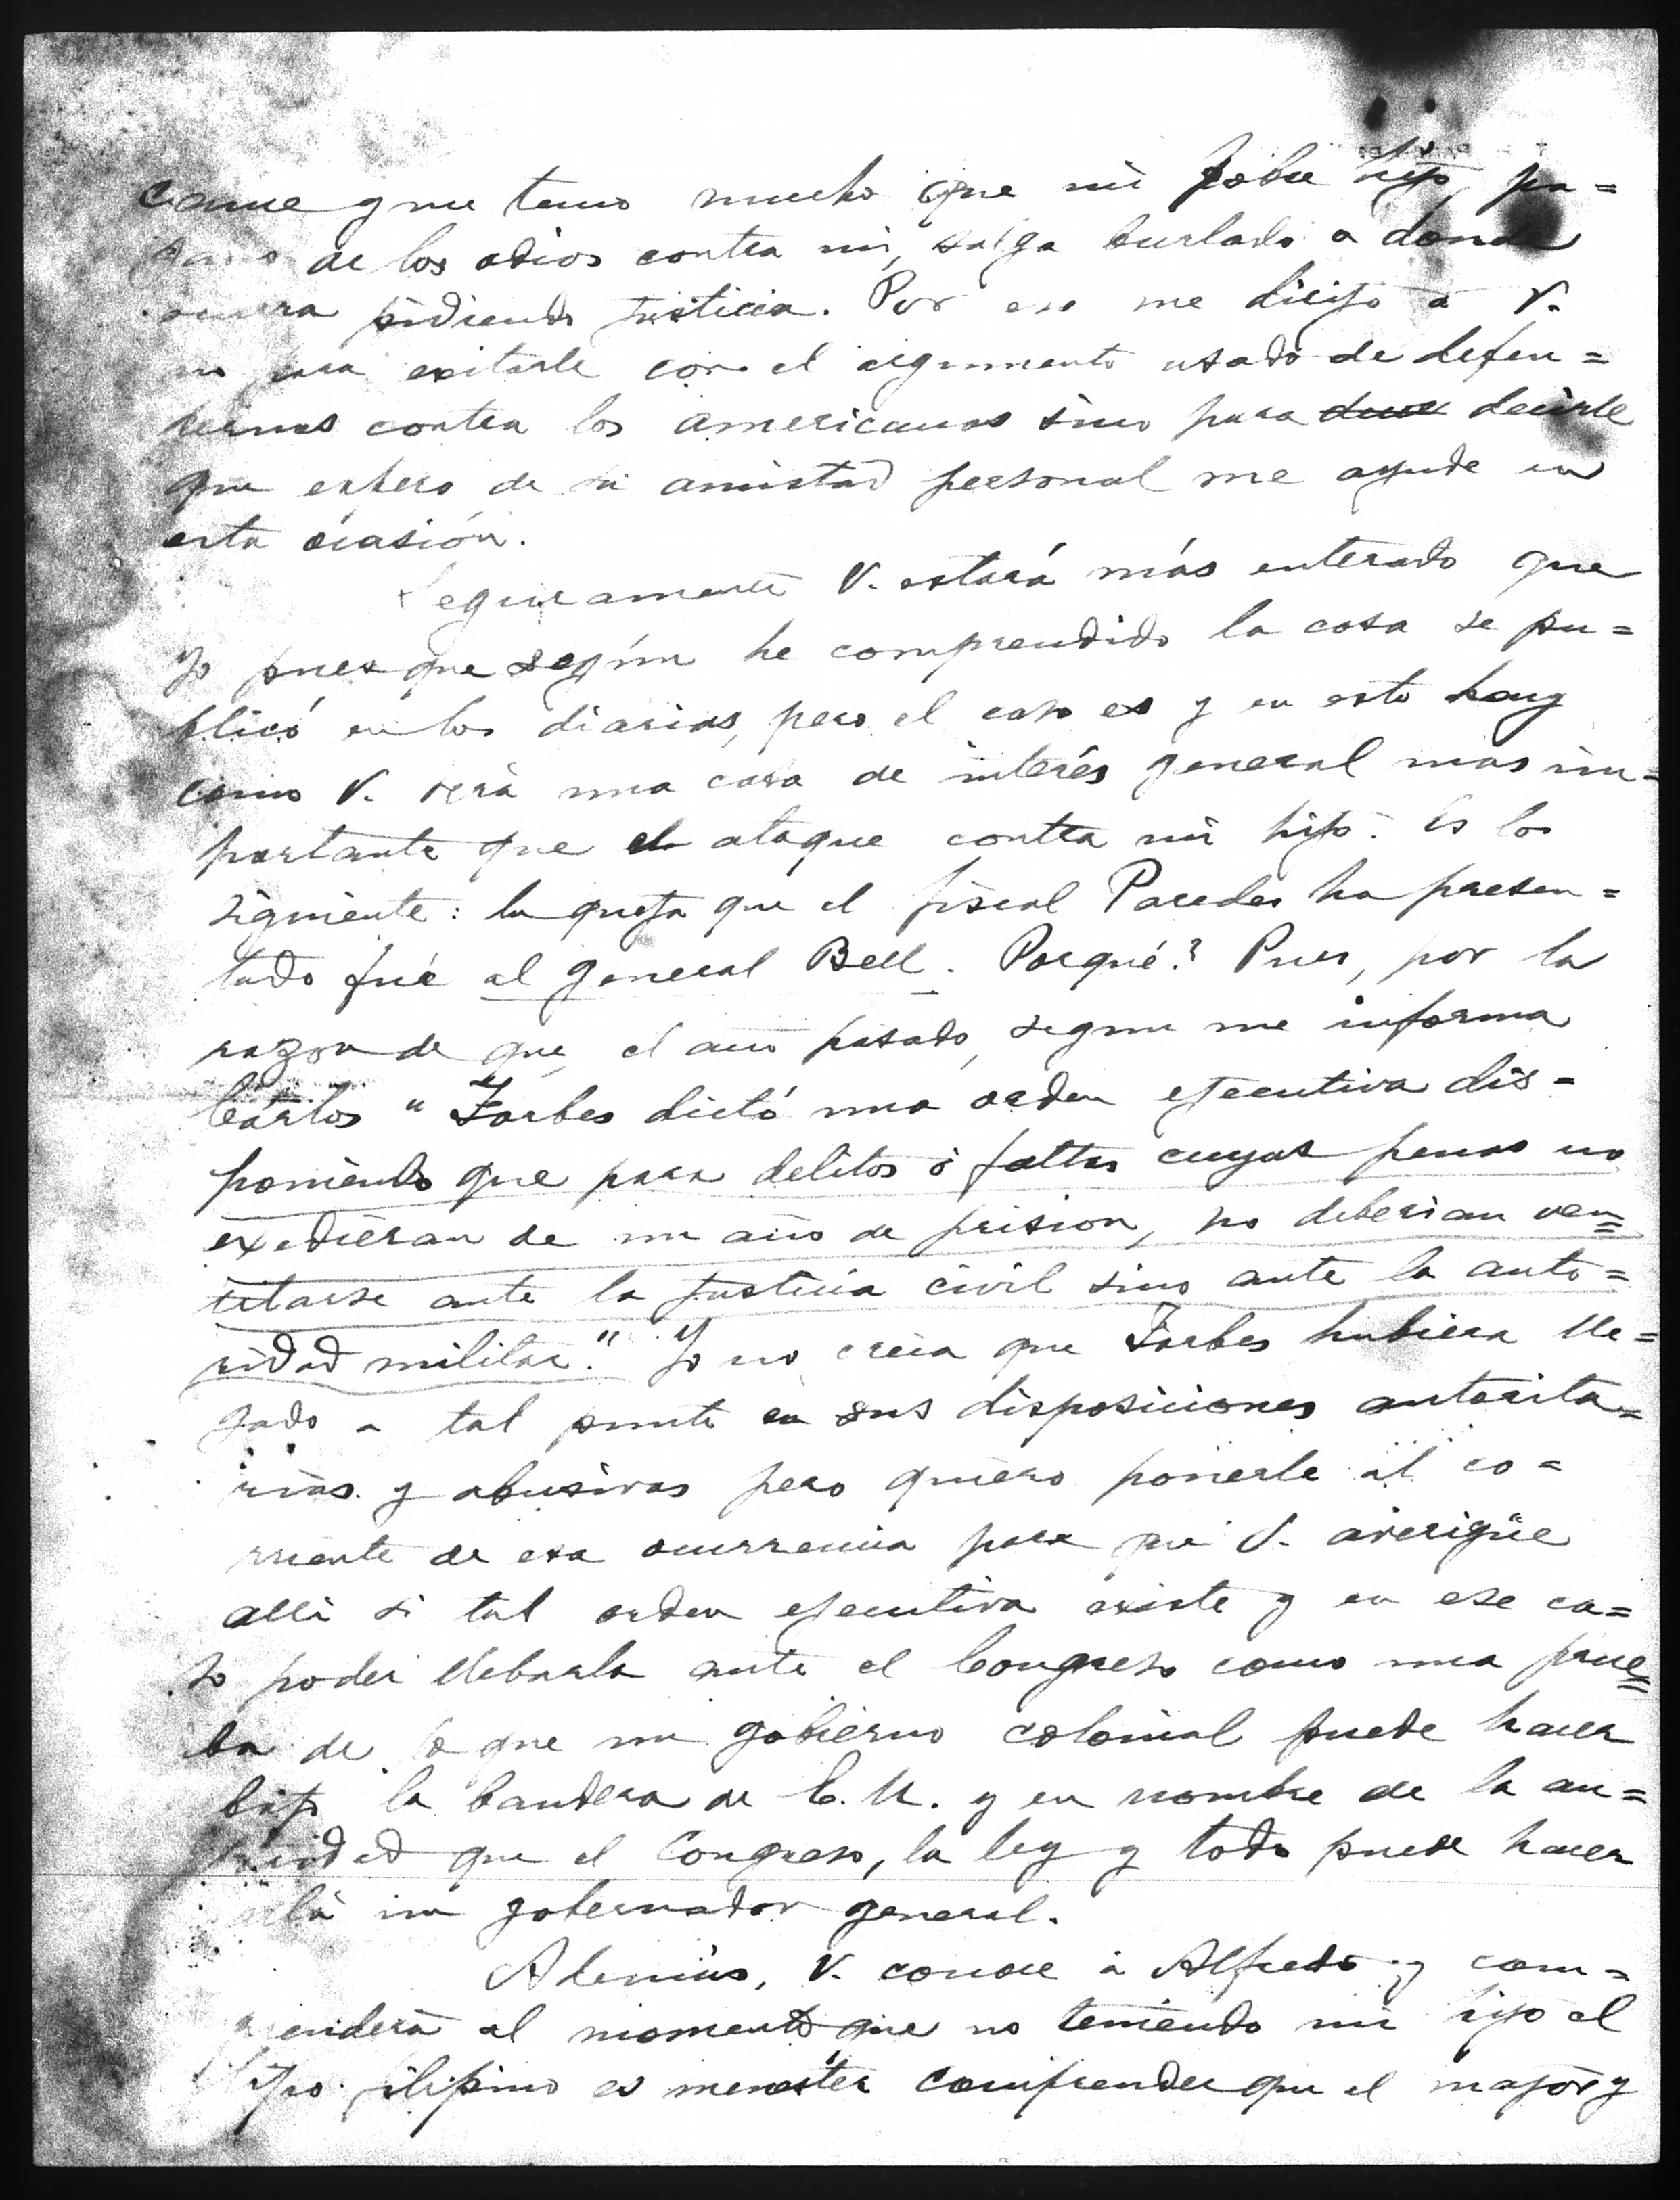 carme y me temo mucho que mi pobre hijo, pa=
de los odios contra mi, salga burlado a donde
pidiendo justicia. Por eso me dirijo a V.
no para exitarle con el argumento usado de defen=
dernos contra los americanos sino para decirle
que espero de su amistad personal me ayude en
esta ócasión.
Seguramente V. estará más enterado que
yo puesque según he comprendido la cosa se pu=
blicó en los diarios, pero el caso es y en esto hay
como V. verá una cosa de interés general mas im=
portante que el ataque contra mi hijo. Es lo
siguiente: la queja que el fiscal Paredes ha presen=
tado fué al general Bell. Porqué? Pues, por la
razon de que, el año pasado, segun me informa
Cárlos "Forbes dictó una orden ejecutiva dis=
poniendo que para delitos ó faltas cuyas penas no
exedieran de un año de prision, no deberian ven=
tilarse ante la justicia civil sino ante la auto=
ridad militar." Yo no creia que Forbes hubiera lle=
gado a tal punto en sus disposiciones autorita=
rias y abusivas pero quiero ponerle al co=
rriente de esa ocurrencia para que V. averigüe
alli si tal orden ejecutiva existe y en ese ca=
so poder llebarla ante el Congreso como una prue=
ba de lo que un gobierno colonial puede hacer
bajo la bandera de E. U. y en nombre de la au=
toridad que el Congreso, la ley y todo puede hacer
un gobernador general.
Ademas, V. conoce á Alfredo y com=
prenderá al momento que no teniendo mi hijo el
tipo filipino es menester comprender que el mayor y